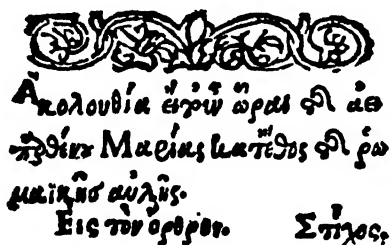 Ἀκολουθία ὧραι τῆς ἀει
παρθένου Μαρίας κατ᾽ ἔθος τῆς ῥω
μαϊκῆς αὐλῆς.
Εἰς τὸν ὄρθρον. Στίχος.